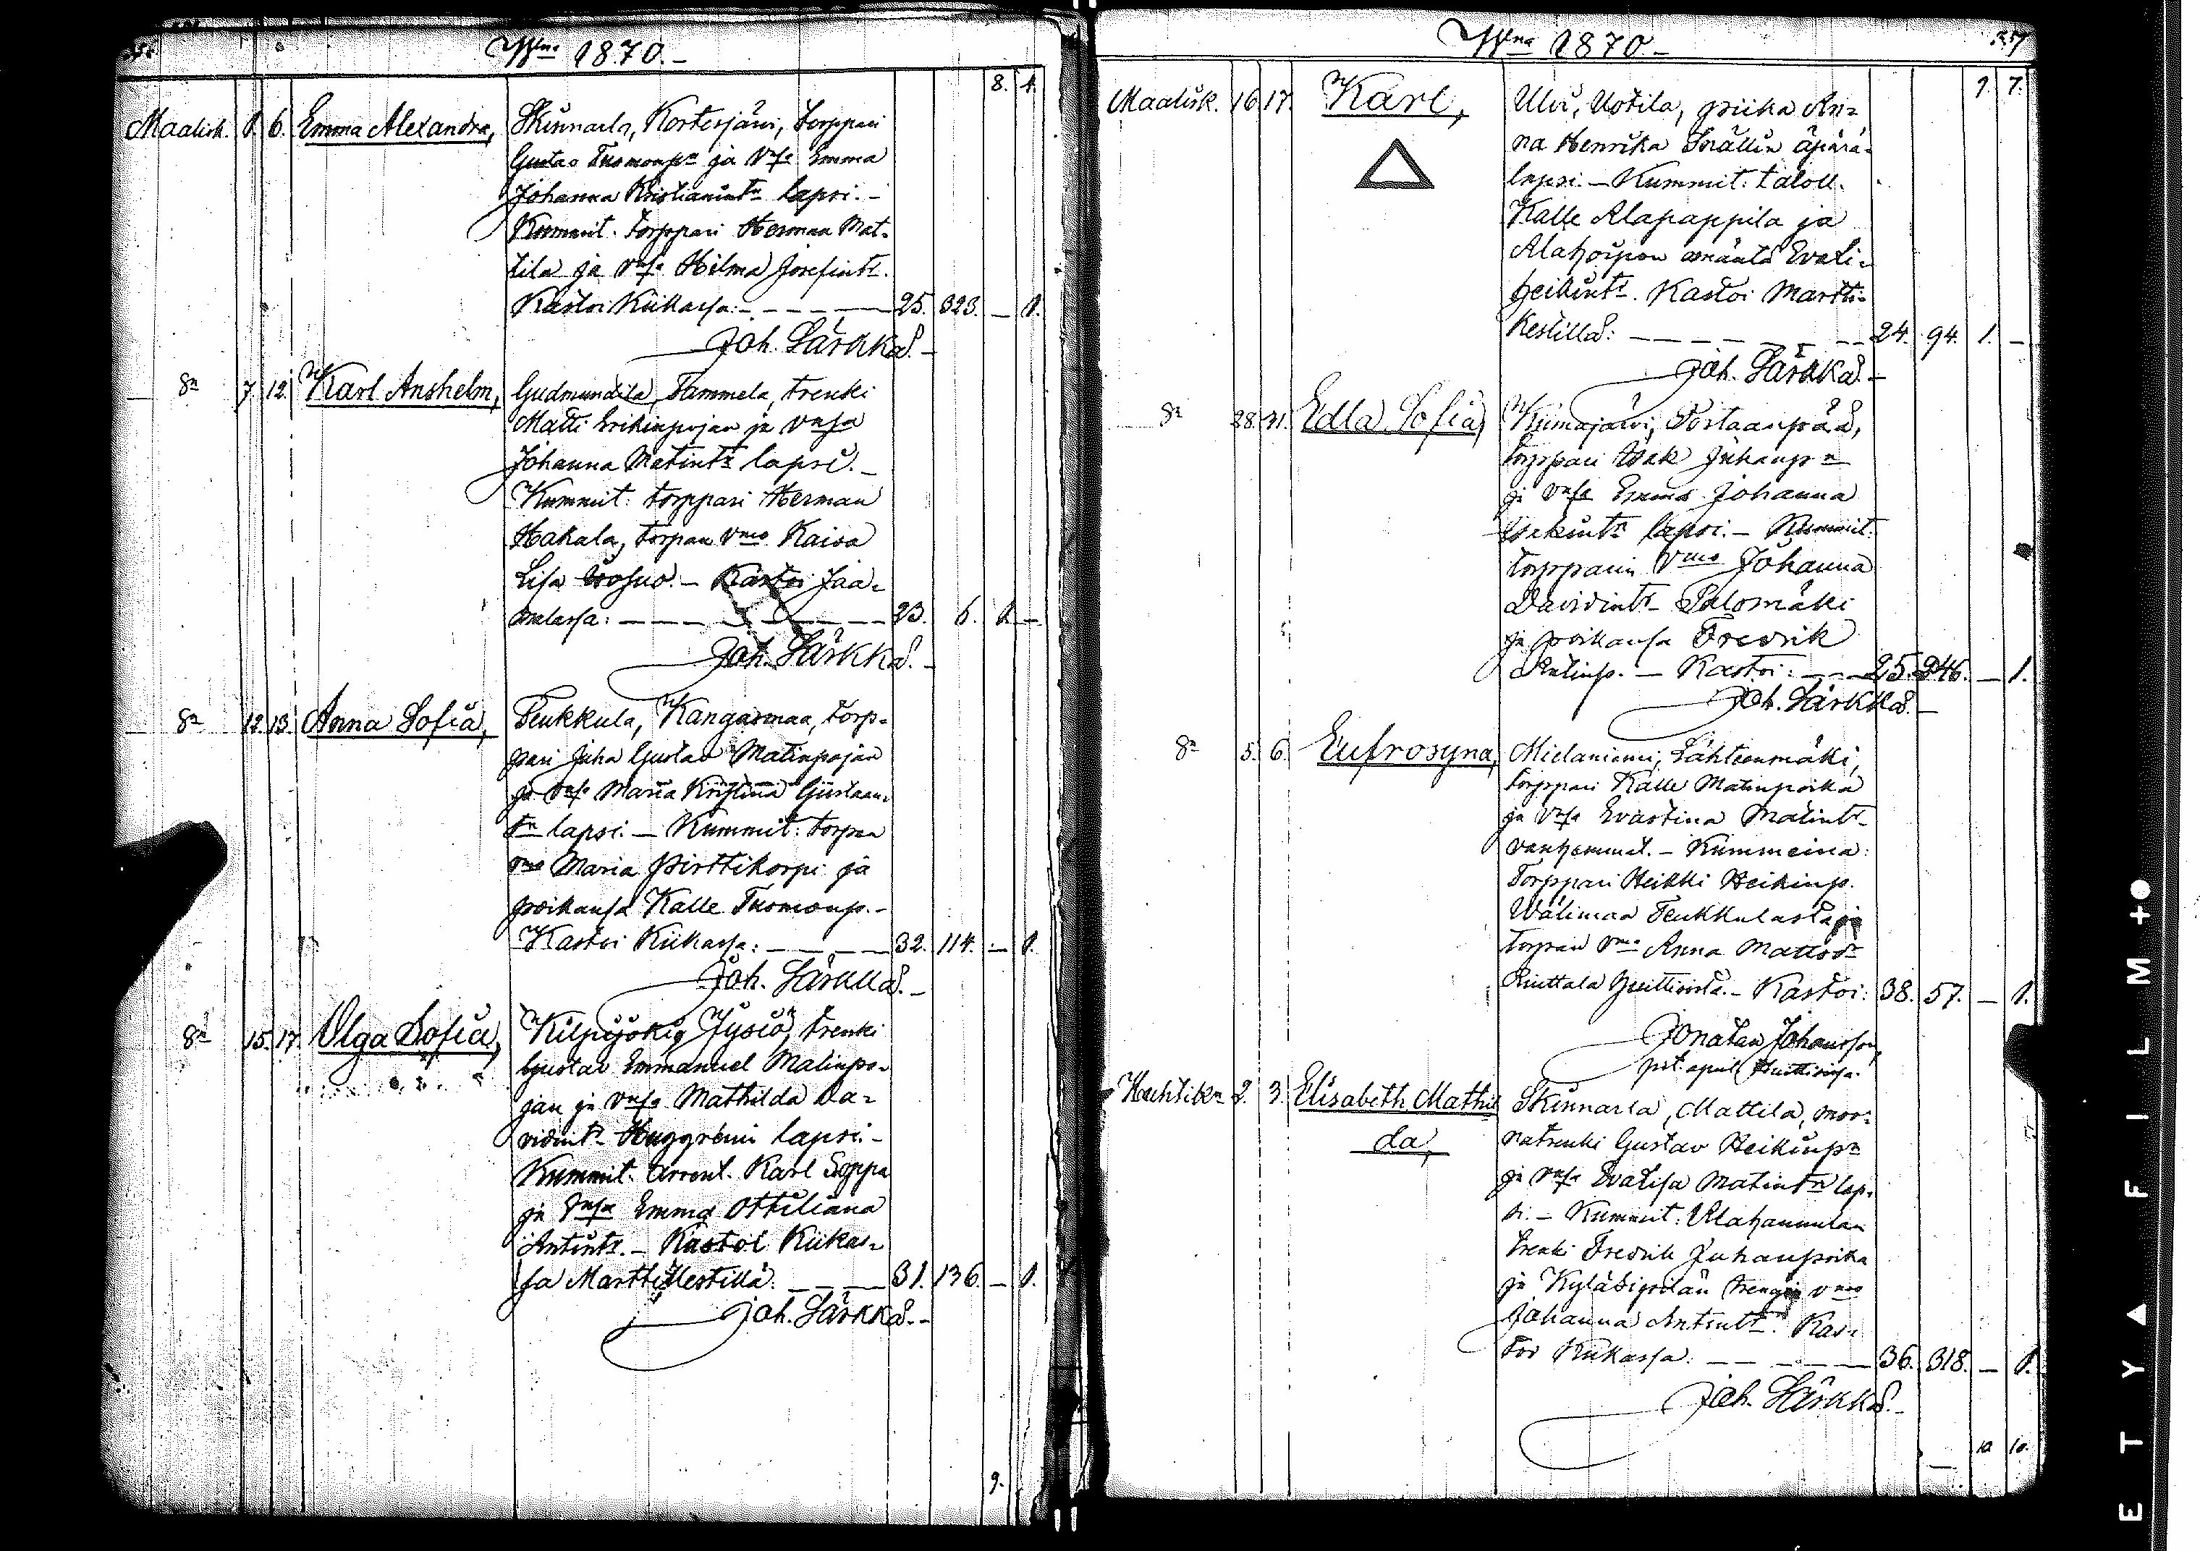 Wna 1870.
8. 4.
Maalisk. 1. 6. Emma Alexandra, Skinnarla, Kortesjärvi, torppari
Gustav Tuomaanpn ja Vmsa Emma
Johanna Kristianintn lapsi. –
Kummit. torppari Herman Mat-
tila ja vmsa Hilma Josefintr.
Kastoi Kiikassa: – – – 25. 323. – 1.
Joh. Särkkä. –
Sn 7. 12. Karl Anshelm, Gudmundila, Tammela, trenki
Matti Erikinpojan ja vmsa
Johanna Matintr lapsi. –
Kummit: torppari Herman
Hakala, torpan Vmo Kaisa
Lisa Isosuo. – Kastoi Jaa-
malassa: – – – 23. 6. 1. –
Joh. Särkkä. –
Sn 12. 13. Anna Sofia, Teukkula, Kangasmaa, torp-
pari Juha Gustav Matinpojan
ja vmsa Maria Kristiina Gustaan-
tn lapsi. – Kummit: torpan
vmo Maria Pirttikorpi ja
poikansa Kalle Tuomonp. –
Kastoi Kiikassa: – – – 32. 114. – 1.
Joh. Särkkä. –
Sn 15. 17. Olga Sofia, Kilpijoki, Jysiö, trenki
Gustav Emmanuel Matinpo-
jan ja vmsa Mathilda Da-
vidintr Huggrénin lapsi. –
Kummit. arrent. Karl Seppä
ja Vmsa Emma Ottiliana
Antintr. – Kastoi Kiikas-
sa Marttikestillä: – – 31. 136. – 1.
Joh. Särkkä. –
9.
Wna 1870. –
357
9. 7.
Maalisk. 16. 17. Karl, Ulvi, Uotila, piika An-
na Henrika Snällin äpärä-
lapsi. – Kummit: taloll.
Kalle Alapappila ja
Alahoipon emäntä Evali-
Heikintr. Kastoi Martti-
Kestillä: – – – 24. 94. 1. –
Joh. Särkkä. –
Sn 28. 31. Edla Sofia, Kiimajärvi, Portaanpää,
torppari Isak Juhanpn
ja vmsa Emma Johanna
Isakintr lapsi. – Kummit:
torpparin Vmo Johanna
Davidintr Salomäki
ja poikansa Fredrik
Antinp. – Kastoi: – – 25. 246. – 1.
Joh. Särkkä. –
Sn 5. 6. Eufrosyna, Mielaniemi, Lähteenmäki,
torppari Kalle Matinpoika
ja Vmsa Evastina Matintr
vanhemmat. – Kummeina:
Torppari Heikki Heikinp.
Wälimaa Teukkulasta ja
torpan Vmo Anna Mattsdr
Riuttala Huittisista. – Kastoi: 38. 57. – 1.
Jonatan Johansson,
pit. apul. Huittisissa.
Huhtikn 2. 3. Elisabeth Mathil Skinnarla, Mattila, muo-
da, natrenki Gustav Heikinpn
ja Vmsa Evalisa Matintn lap-
si. – Kummit: Alahannulan
trenki Fredrik Juhanpoika
ja Kyläsippilän trengin vmo
Johanna Antintr. Kas-
toi Kiikassa: – – – 36. 318. – 1.
Joh. Särkkä. –
10 10.
ETY▲FILM